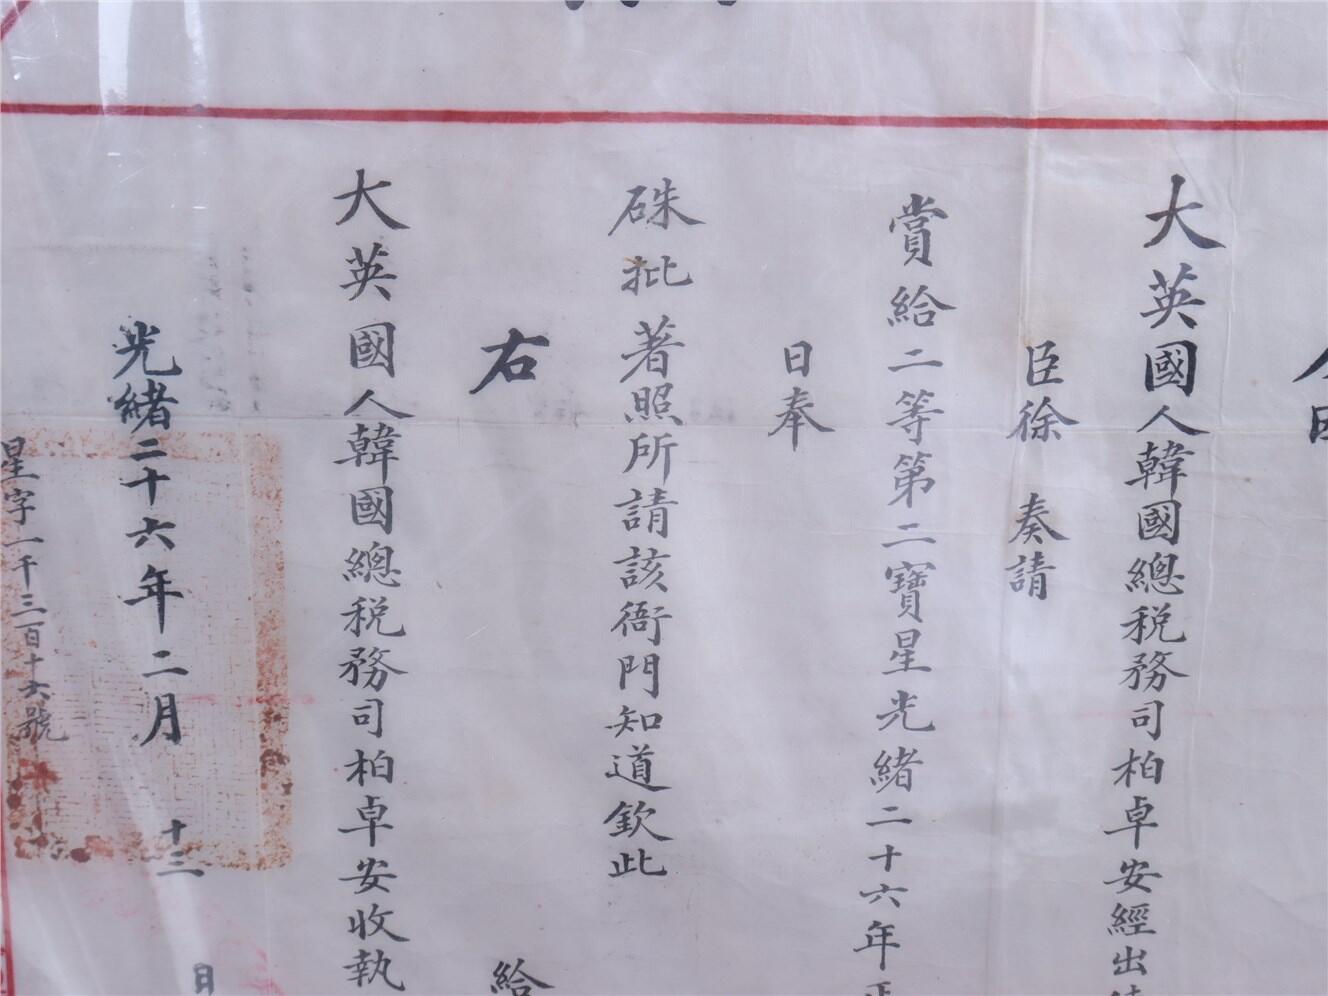 大英國人韓國總稅務司柏卓安經出
臣徐 奏請
賞給二等第二寶星光緒二十六年正
日奉
硃批著照所請該衙門知道欽此
右 給
大英國人韓國總稅務司柏卓安收執
光緒二十六年二月 十二 日
星字一千三百十六號